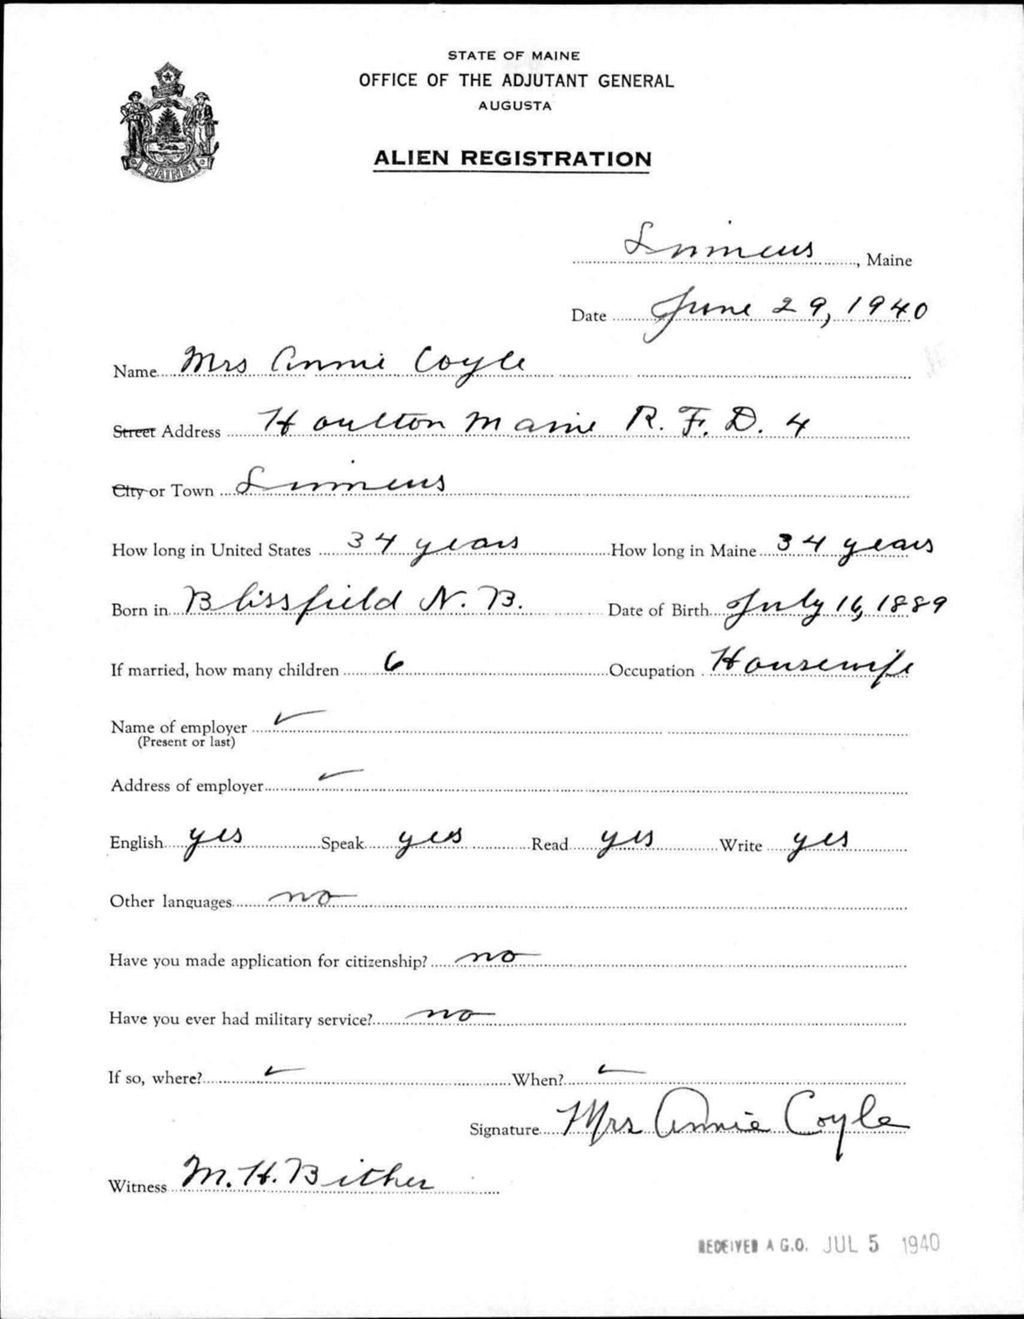 STATE OF MAINE
OFFICE OF THE ADJUTANT GENERAL
AUGUSTA
ALIEN REGISTRATION
MAINE
Linneus, Maine
Date June 29, 1940
Name Mrs Annie Coyle
Street Address Houlton Maine R. F. D. 4
City or Town Linneus
How long in United States 34 years How long in Maine 34 years
Born in Blissfield N. B. Date of Birth July 16, 1889
If married, how many children 6 Occupation Housewife
Name of employer ✓
(Present or last)
Address of employer ✓
English yes Speak yes Read yes Write yes
Other languages no
Have you made application for citizenship? no
Have you ever had military service? no
If so, where? ✓ When? ✓
Signature Mrs Annie Coyle
Witness M. H. Bither
RECEIVED A.G.O. JUL 5 1940